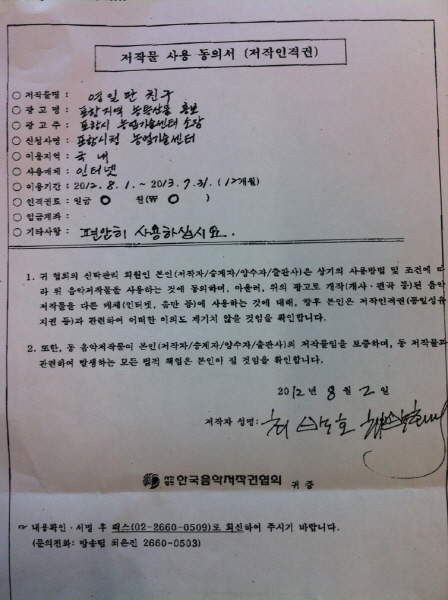 저작물 사용 동의서 (저작인격권)
○ 저작물명 : 영일만 친구
○ 광고명 : 포항지역 농특산물 홍보
○ 광고주 : 포항시 농업기술센터 소장
○ 신청사명 : 포항시청 농업기술센터
○ 이용지역 : 국내
○ 사용매체 : 인터넷
○ 이용기간 : 2012. 8. 1. ~ 2013. 7. 31. (12개월)
○ 인격권료 : 일금 0 원(₩ 0 )
○ 입금계좌 :
○ 기타사항 : 편안히 사용하십시요.
1. 귀 협회의 신탁관리 회원인 본인(저작자/승계자/양수자/출판사)은 상기의 사용방법 및 조건에 따
라 위 음악저작물을 사용하는 것에 동의하며, 아울러, 위의 광고로 개작(개사·편곡 등)된 음악
저작물을 다른 매체(인터넷, 음반 등)에 사용하는 것에 대해, 향후 본인은 저작인격권(동일성유
지권 등)과 관련하여 어떠한 이의도 제기치 않을 것임을 확인합니다.
2. 또한, 동 음악저작물이 본인(저작자/승계자/양수자/출판사)의 저작물임을 보증하며, 동 저작물과
관련하여 발생하는 모든 법적 책임은 본인이 질 것임을 확인합니다.
2012년 8월 2일
저작자 성명:
사단법인 한국음악저작권협회 귀중
☞ 내용확인·서명 후 팩스(02-2660-0509)로 회신하여 주시기 바랍니다.
(문의전화: 방송팀 최은진 2660-0503)